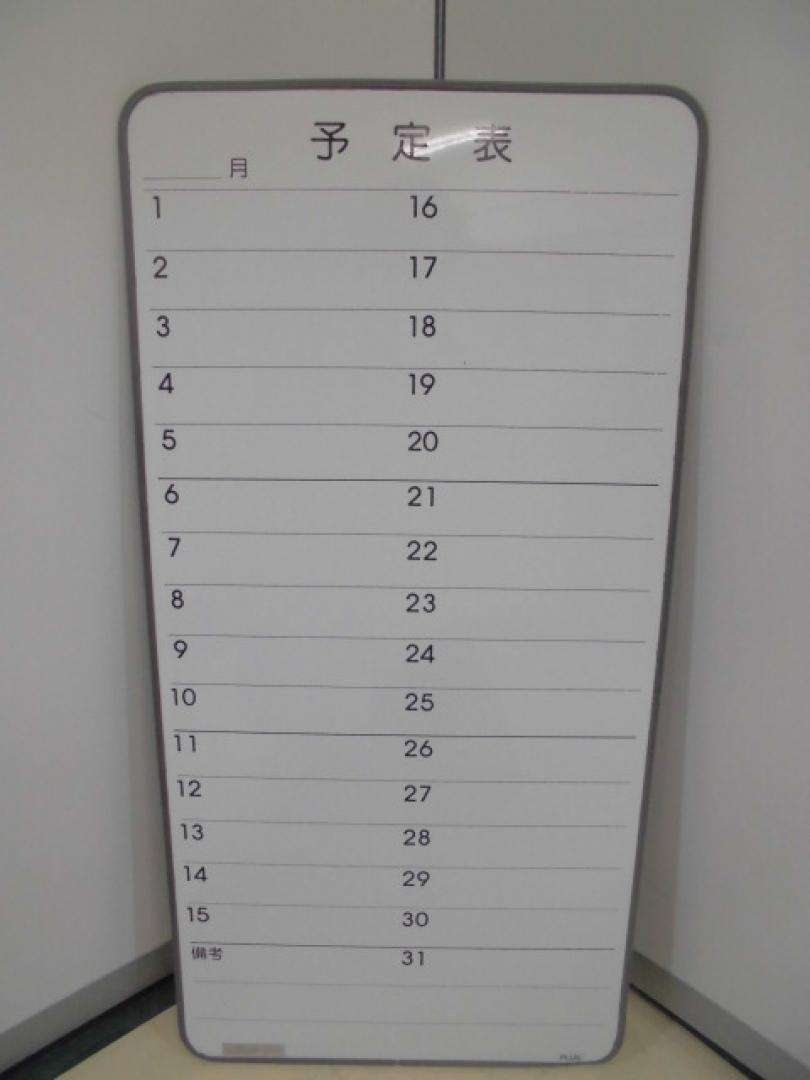 予定表
月
1 16
2 17
3 18
4 19
5 20
6 21
7 22
8 23
9 24
10 25
11 26
12 27
13 28
14 29
15 30
備考 31
PLUS